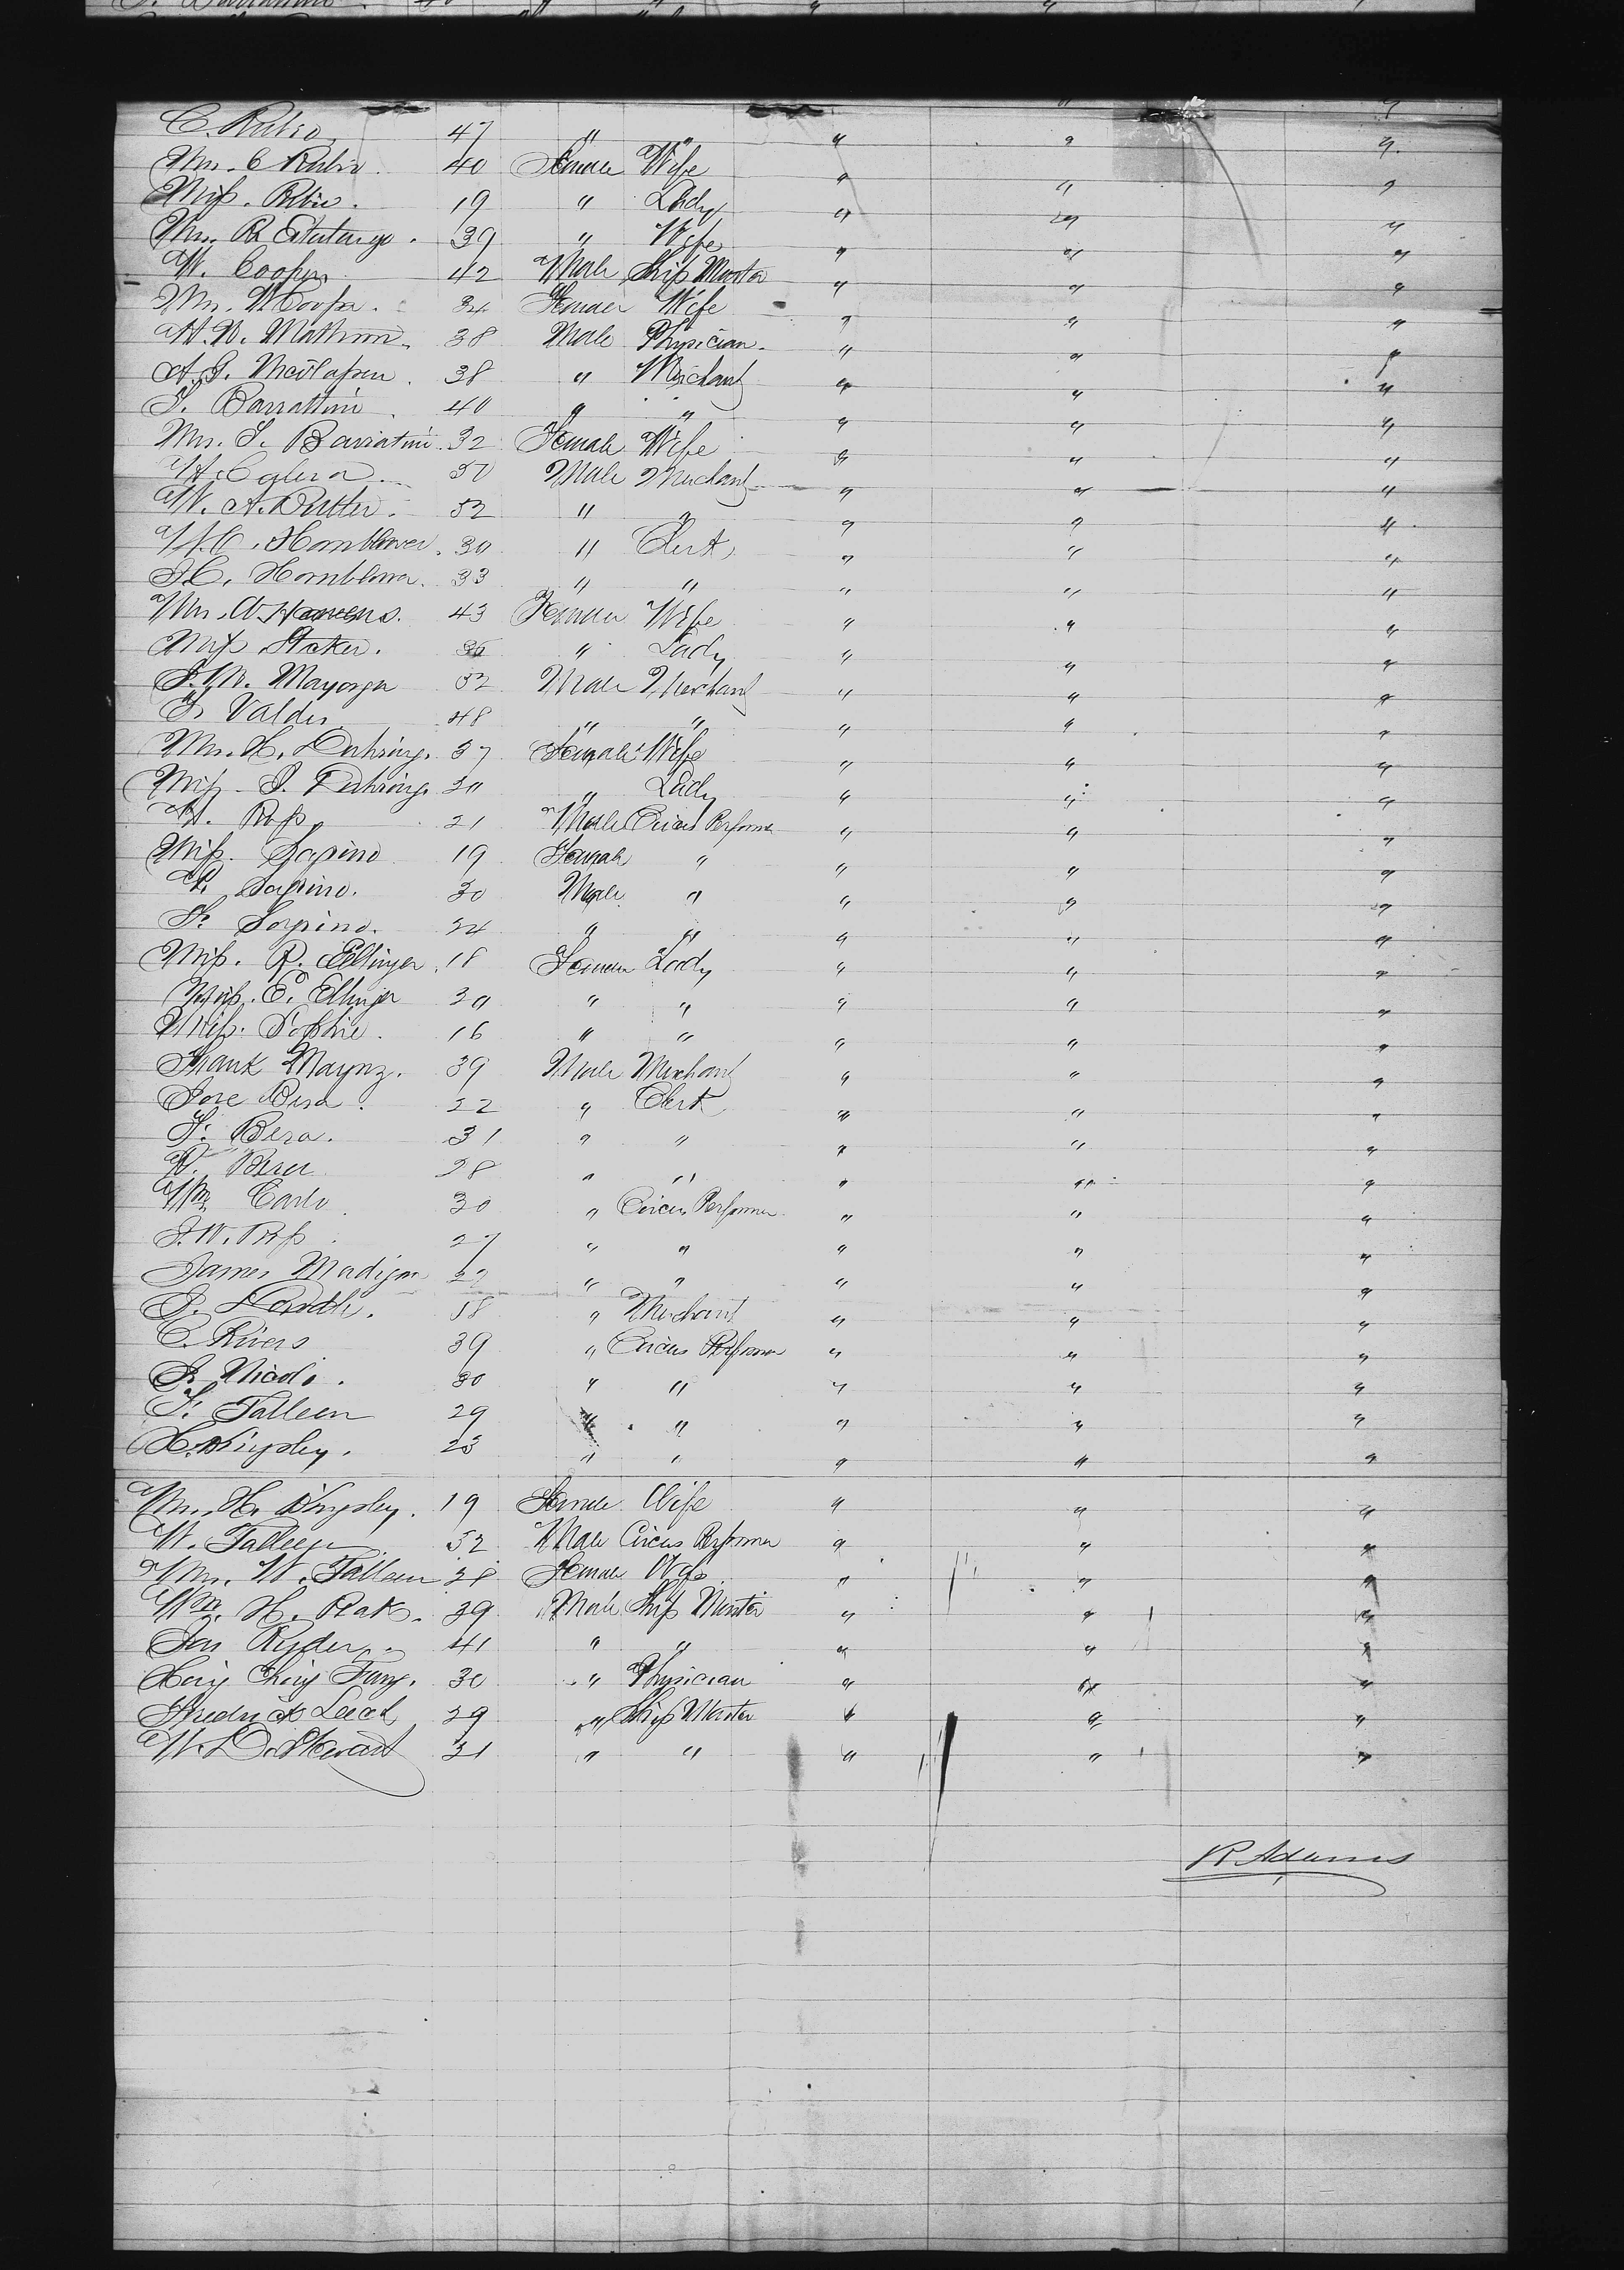 C. Rubio 47 " " " " "
Mrs. C Rubio. 40 Female Wife " " "
Miss. Rubio. 19 " Lady " " "
Mrs. R. 39 " Wife " " "
W. Cooper 42 Male Ship Master " " "
Mrs. W. Cooper. 34 Female Wife " " "
H. N. 38 Male Physician " " "
A. G. 38 " Merchant " " "
S. Barrattini. 40 " " " " "
Mrs. S. Barratini. 32 Female Wife " " "
H. Calera 50 Male Merchant " " "
W. A. Rutter. 52 " " " " "
W. C. Hornblower. 30 " Clerk " " "
J. C. Hornblower. 33 " " " " "
Mrs. A. Havens. 43 Female Wife " " "
Miss Staker. " Lady " " "
J. M. Mayorga 52 Male Merchant " " "
J. Valdes 48 " " " " "
Mrs. H. Duhring. 37 Female Wife " " "
Miss J. Duhring. 20 " Lady " " "
A. Ross 21 Male Circus Performer " " "
Miss. Sagrino 19 Female " " " "
P. Sagrino. 30 Male " " " "
F. Sagrino. 24 " " " " "
Miss. R. Ellinger. 18 Female Lady " " "
Miss. E. Ellinger 20 " " " " "
Miss. Sophie. 16 " " " " "
Frank Maynz. 39 Male Merchant " " "
Jose Bera. 22 " Clerk " " "
F. Bera. 31 " " " " "
P. Bera 28 " " " " "
Wm Carlo. 30 " Circus Performer " " "
J. W. Ross 27 " " " " "
James Madigan 22 " " " " "
J. 18 " Merchant " " "
C. Rivers 39 " Circus Performer " " "
J. Nicoli. 30 " " " " "
F. Talleen 29 " " " " "
H. Kingsley. 23 " " " " "
Mrs. H. Kingsley. 19 Female Wife " " "
W. Talleen 52 Male Circus Performer " " "
Mrs. W. Talleen 28 Female Wife " " "
Wm. H. 39 Male Ship Master " " "
Jos Ryder. 41 " " " " "
Fung. 30 " Physician " " "
Fredrick Leech 29 " Ship Master " " "
W. D. Stewart 31 " " " " "
R Adams